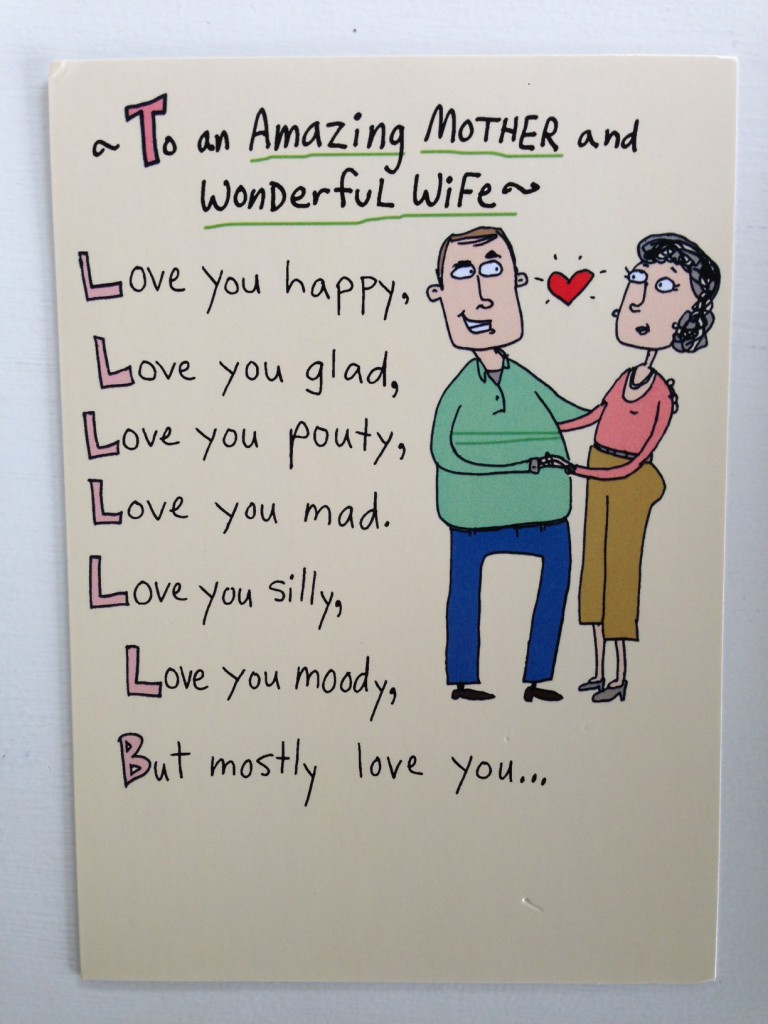 ~ To an Amazing MOTHER and
WonDerfuL WiFe ~
Love you happy,
Love you glad,
Love you pouty,
Love you mad.
Love you silly,
Love you moody,
But mostly love you...